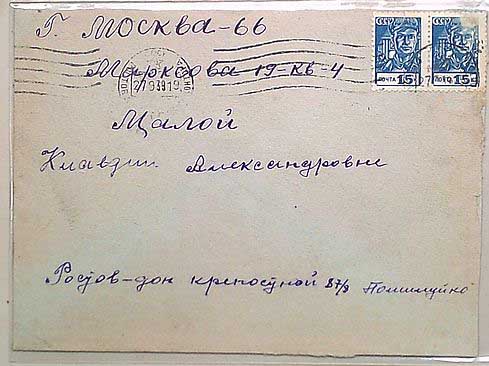 Г. Москва-66
Марксова 19 кв-4
Малой
Клавдии Александровне
Ростов-дон крепостной 87/9
СССР
ПОЧТА 15
СССР
ПОЧТА 15
27 9 39 19